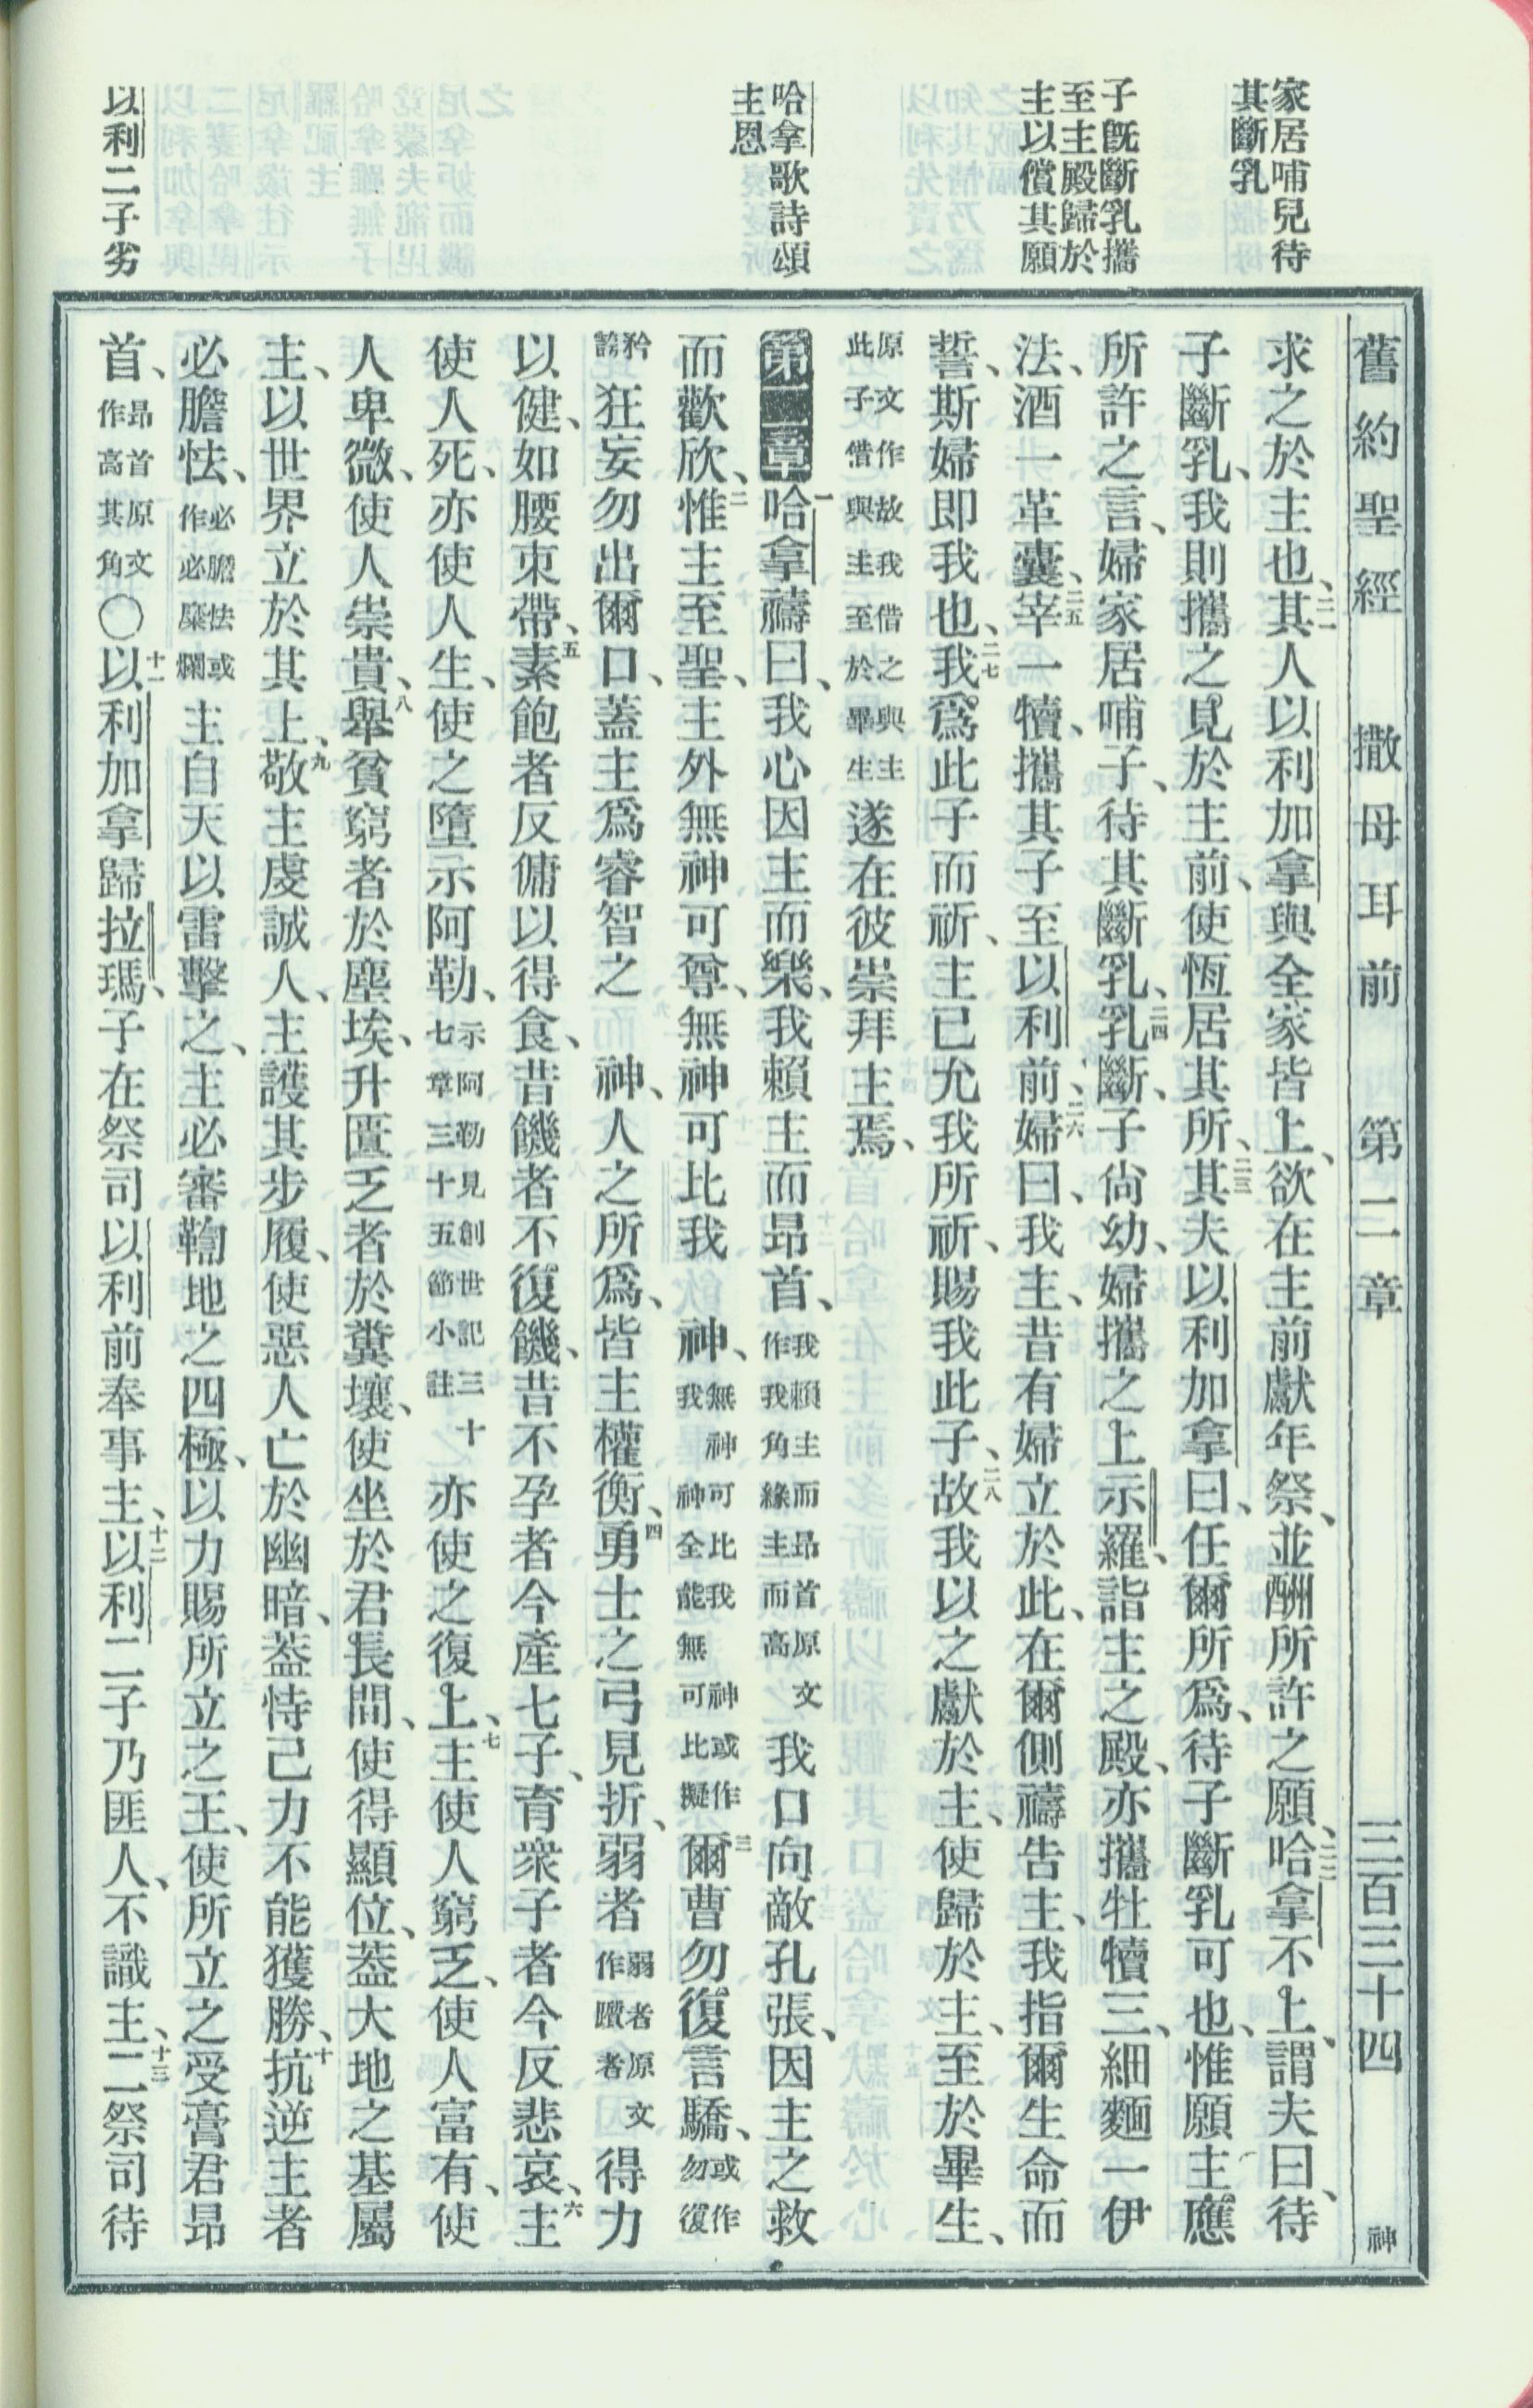 舊約聖經 撒母耳前 第二章 三百三十四 神
家居哺兒待
其斷乳
子旣斷乳攜
至主殿歸於
主以償其願
哈拿歌詩頌
主恩
以利二子劣
求之於主也、二一其人以利加拿與全家皆上、欲在主前獻年祭、並酬所許之願、二二哈拿不上、謂夫曰、待
子斷乳、我則攜之見於主前、使恆居其所、二三其夫以利加拿曰、任爾所爲、待子斷乳可也、惟願主應
所許之言、婦家居哺子、待其斷乳、二四乳斷、子尙幼、婦攜之上示羅、詣主之殿、亦攜牡犢三、細麵一伊
法、酒一革囊、二五宰一犢、攜其子至以利前、二六婦曰、我主、昔有婦立於此、在爾側禱告主、我指爾生命而
誓、斯婦即我也、二七我爲此子而祈、主已允我所祈、賜我此子、二八故我以之獻於主、使歸於主、至於畢生、
原文作故我借之與主
此子借與主至於畢生
遂在彼崇拜主焉、
第二章 一哈拿禱曰、我心因主而樂、我賴主而昂首、
我賴主而昂首原文
作我角緣主而高
我口向敵孔張、因主之救
而歡欣、二惟主至聖、主外無神可尊、無神可比我 神、
無神可比我 神或作
我 神全能無可比擬
三爾曹勿復言驕、
或作
勿復
矜
誇
狂妄勿出爾口、蓋主爲睿智之 神、人之所爲、皆主權衡、四勇士之弓見折、弱者
弱者原文
作躓者
得力
以健、如腰束帶、五素飽者反傭以得食、昔饑者不復饑、昔不孕者今產七子、育衆子者今反悲哀、六主
使人死、亦使人生、使之墮示阿勒、
示阿勒見創世記三十
七章三十五節小註
亦使之復上、七主使人窮乏、使人富有、使
人卑微、使人崇貴、八舉貧窮者於塵埃、升匱乏者於糞壤、使坐於君長間、使得顯位、蓋大地之基屬
主、以世界立於其上、九敬主虔誠人、主護其步履、使惡人亡於幽暗、蓋恃己力不能獲勝、十抗逆主者
必膽怯、
必膽怯或
作必糜爛
主自天以雷擊之、主必審鞫地之四極、以力賜所立之王、使所立之受膏君昂
首、
昂首原文
作高其角
〇十一以利加拿歸拉瑪、子在祭司以利前奉事主、十二以利二子乃匪人、不識主、十三二祭司待